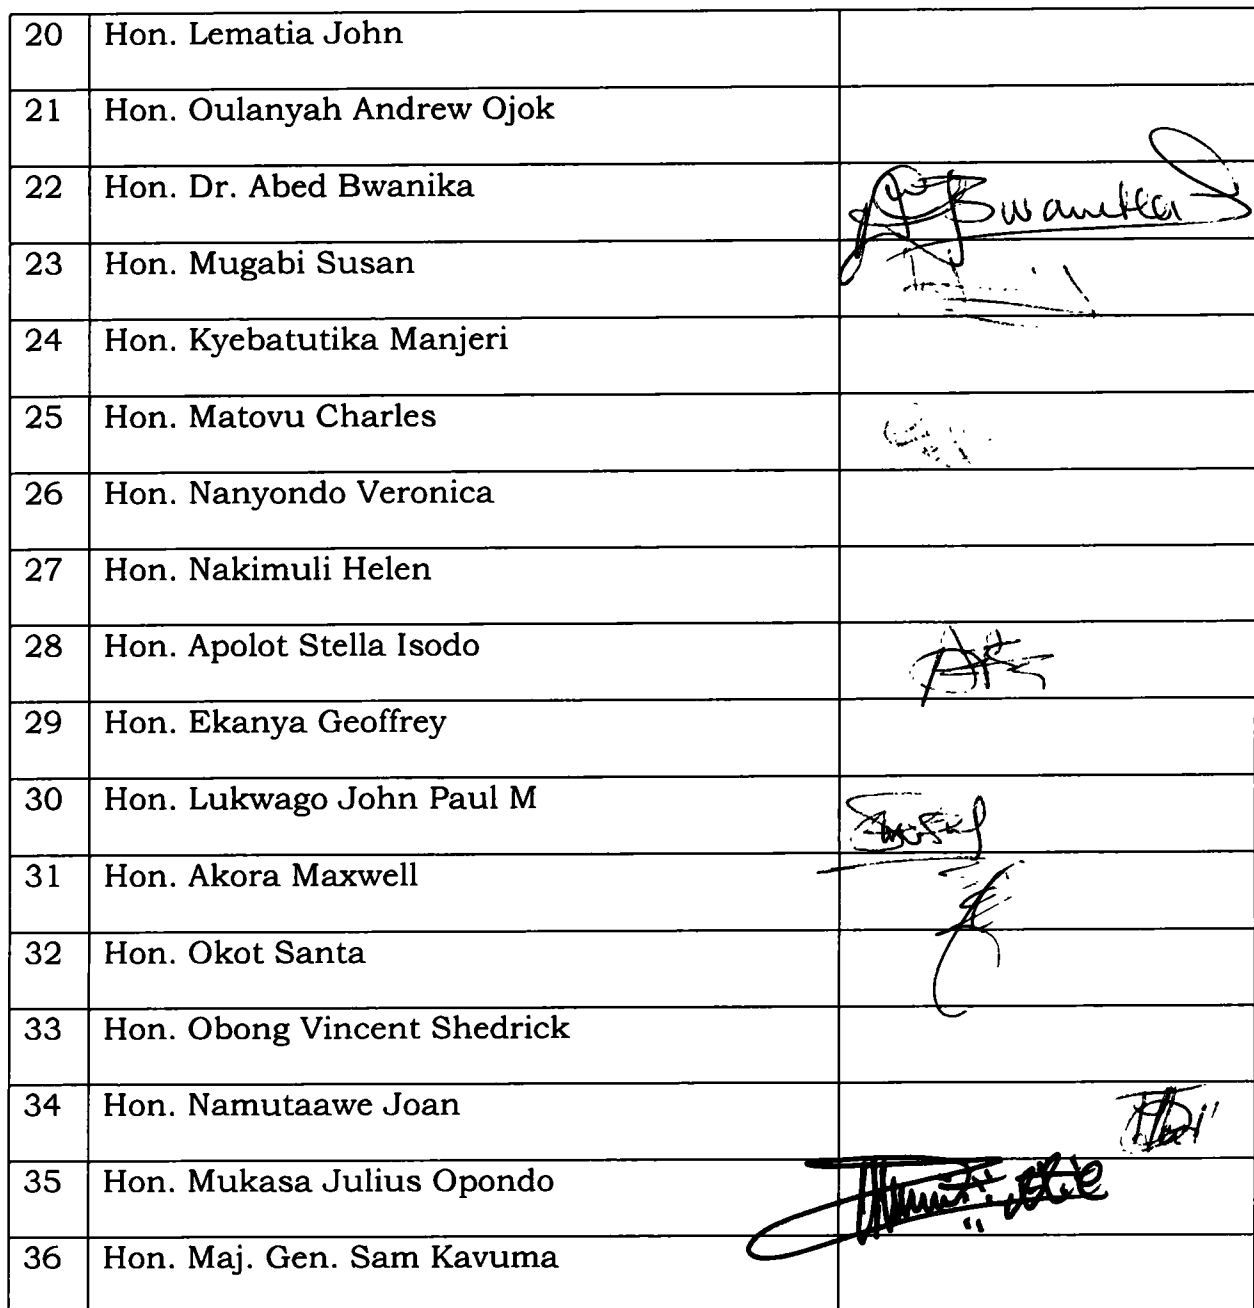 20 Hon. Lematia John
21 Hon. Oulanyah Andrew Ojok
22 Hon. Dr. Abed Bwanika Bwanika
23 Hon. Mugabi Susan
24 Hon. Kyebatutika Manjeri
25 Hon. Matovu Charles
26 Hon. Nanyondo Veronica
27 Hon. Nakimuli Helen
28 Hon. Apolot Stella Isodo
29 Hon. Ekanya Geoffrey
30 Hon. Lukwago John Paul M
31 Hon. Akora Maxwell
32 Hon. Okot Santa
33 Hon. Obong Vincent Shedrick
34 Hon. Namutaawe Joan
35 Hon. Mukasa Julius Opondo
36 Hon. Maj. Gen. Sam Kavuma